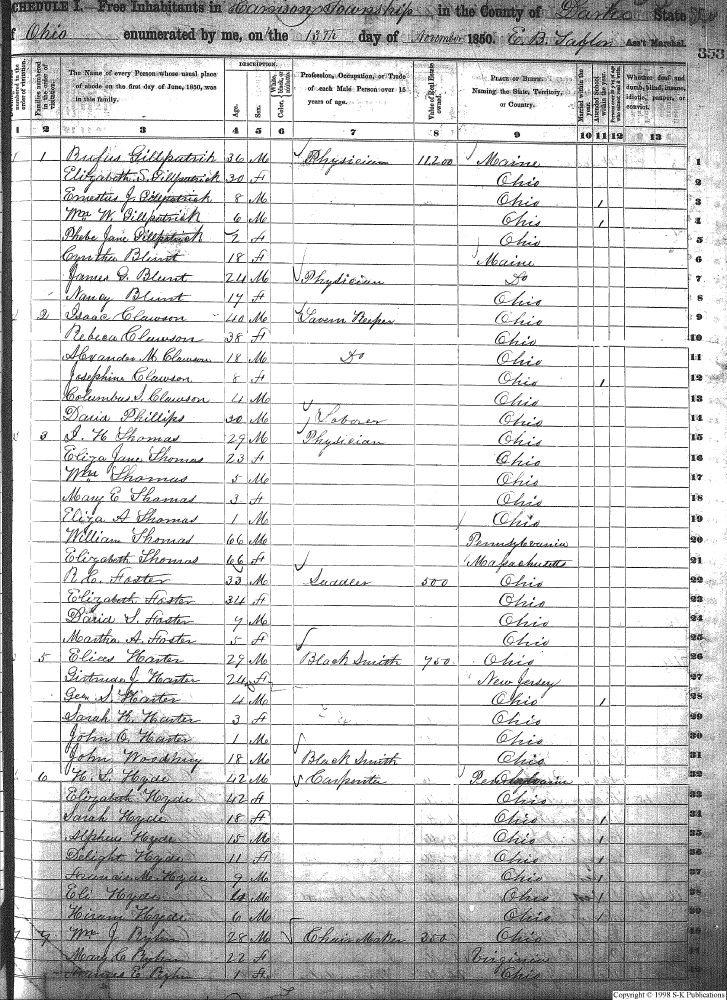 SCHEDULE I.—Free Inhabitants in Harrison Township in the County of Darke State
of Ohio enumerated by me, on the 13th day of November 1850. E. B. Taylor Ass't Marshal.
353
DESCRIPTION.
numbered in the order of visitation.
Families numbered in the order of visitation.
The Name of every Person whose usual place of abode on the first day of June, 1850, was in this family.
Age.
Sex.
Color, White, black, or mulatto.
Profession, Occupation, or Trade of each Male Person over 15 years of age.
Value of Real Estate owned.
PLACE OF BIRTH. Naming the State, Territory, or Country.
Married within the year.
Attended School within the year.
Whether deaf and dumb, blind, insane, idiotic, pauper, or convict.
1 2 3 4 5 6 7 8 9 10 11 12 13
1 Rufus Gillpatrick 36 M Physician 11200 Maine 1
Elizabeth S. Gillpatrick 30 F Ohio 2
Ernestus J. Gillpatrick 8 M Ohio 1 3
Wm W. Gillpatrick 6 M Ohio 1 4
Phebe Jane Gillpatrick 2 F Ohio 5
Cynthia Blunt 18 F Maine 6
James G. Blunt 24 M Physician Do 7
Nancy Blunt 17 F Ohio 8
2 Isaac Clawson 40 M Tavern Keeper Ohio 9
Rebeca Clawson 38 F Ohio 10
Alexander M Clawson 18 M Do Ohio 11
Josephine Clawson 8 F Ohio 1 12
Columbus S. Clawson 4 M Ohio 13
David Phillips 30 M Laborer Ohio 14
3 I. H Thomas 29 M Physician Ohio 15
Eliza Jane Thomas 23 F Ohio 16
Wm Thomas 5 M Ohio 17
Mary E Thomas 3 F Ohio 18
Eliza A Thomas 1 M Ohio 19
William Thomas 66 M Pennsylvania 20
Elizabeth Thomas 66 F Massachusetts 21
R. C. Foster 33 M Saddler 500 Ohio 22
Elizabeth Foster 34 F Ohio 23
David S. Foster 7 M Ohio 24
Martha A. Foster 5 F Ohio 25
5 Elias Harter 29 M Black Smith 750 Ohio 26
Girtrude J Harter 24 F New Jersey 27
Geo. S. Harter 4 M Ohio 1 28
Sarah H. Harter 3 F Ohio 29
John O. Harter 1 M Ohio 30
John 18 M Black Smith Ohio 31
6 H. S. Hyde 42 M Carpenter Pennsylvania 32
Elizabeth Hyde 42 F Ohio 33
Sarah Hyde 18 F Ohio 1 34
Alpheus Hyde 15 M Ohio 1
Delight Hyde 11 F Ohio 1
M. Hyde 9 M Ohio 1
Eli Hyde M Ohio 1
Hiram Hyde 6 M Ohio 1
7 Wm J. Ryhn 28 M Chair Maker 350 Ohio
Mary C Ryhn 22 F Virginia
Frances E. Ryhn 1 F Ohio
Copyright © 1998 S-K Publications